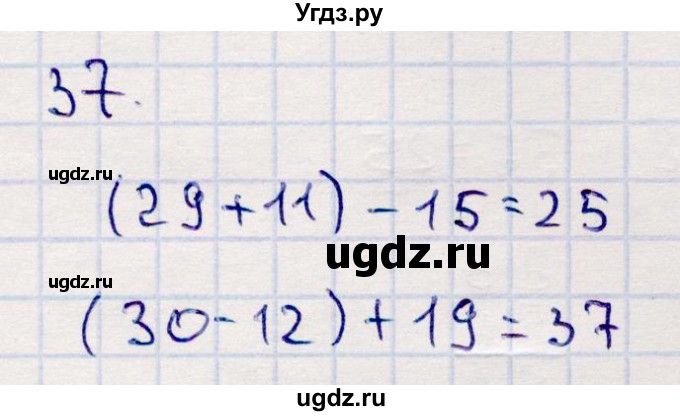 Угдз.ру
37.
ugdz.ru
(29+11)-15=25
ugdz.ru
ugdz.ru
(30-12)+19=37
ugdz.ru